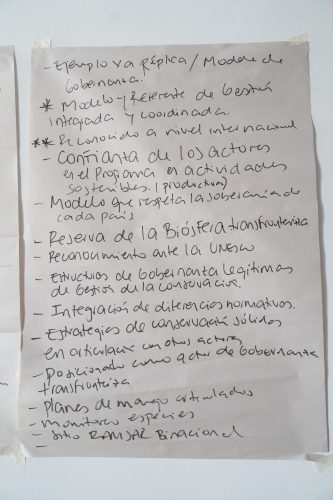 - Ejemplo xa réplica / Modelo de
Gobernanza.
* Modelo y Referente de Gestión
integrada y coordinada.
** Reconocido a nivel internacional
- Confianza de los actores
en el Programa en actividades
sostenibles. (productiva)
- Modelo que respeta la soberanía de
cada país
- Reserva de la Biósfera transfronteriza
- Reconocimiento ante la UNESCO
- Estructuras de Gobernanza legítimas
de Gestión de la conservación.
- Integración de diferencias normativas.
- Estrategias de conservación sólidas
en articulación con otros actores
- Posicionado como actor de Gobernanza
transfronteriza
- Planes de manejo articulados
- monitoreo especies
- Sitio RAMSAR Binacional
-